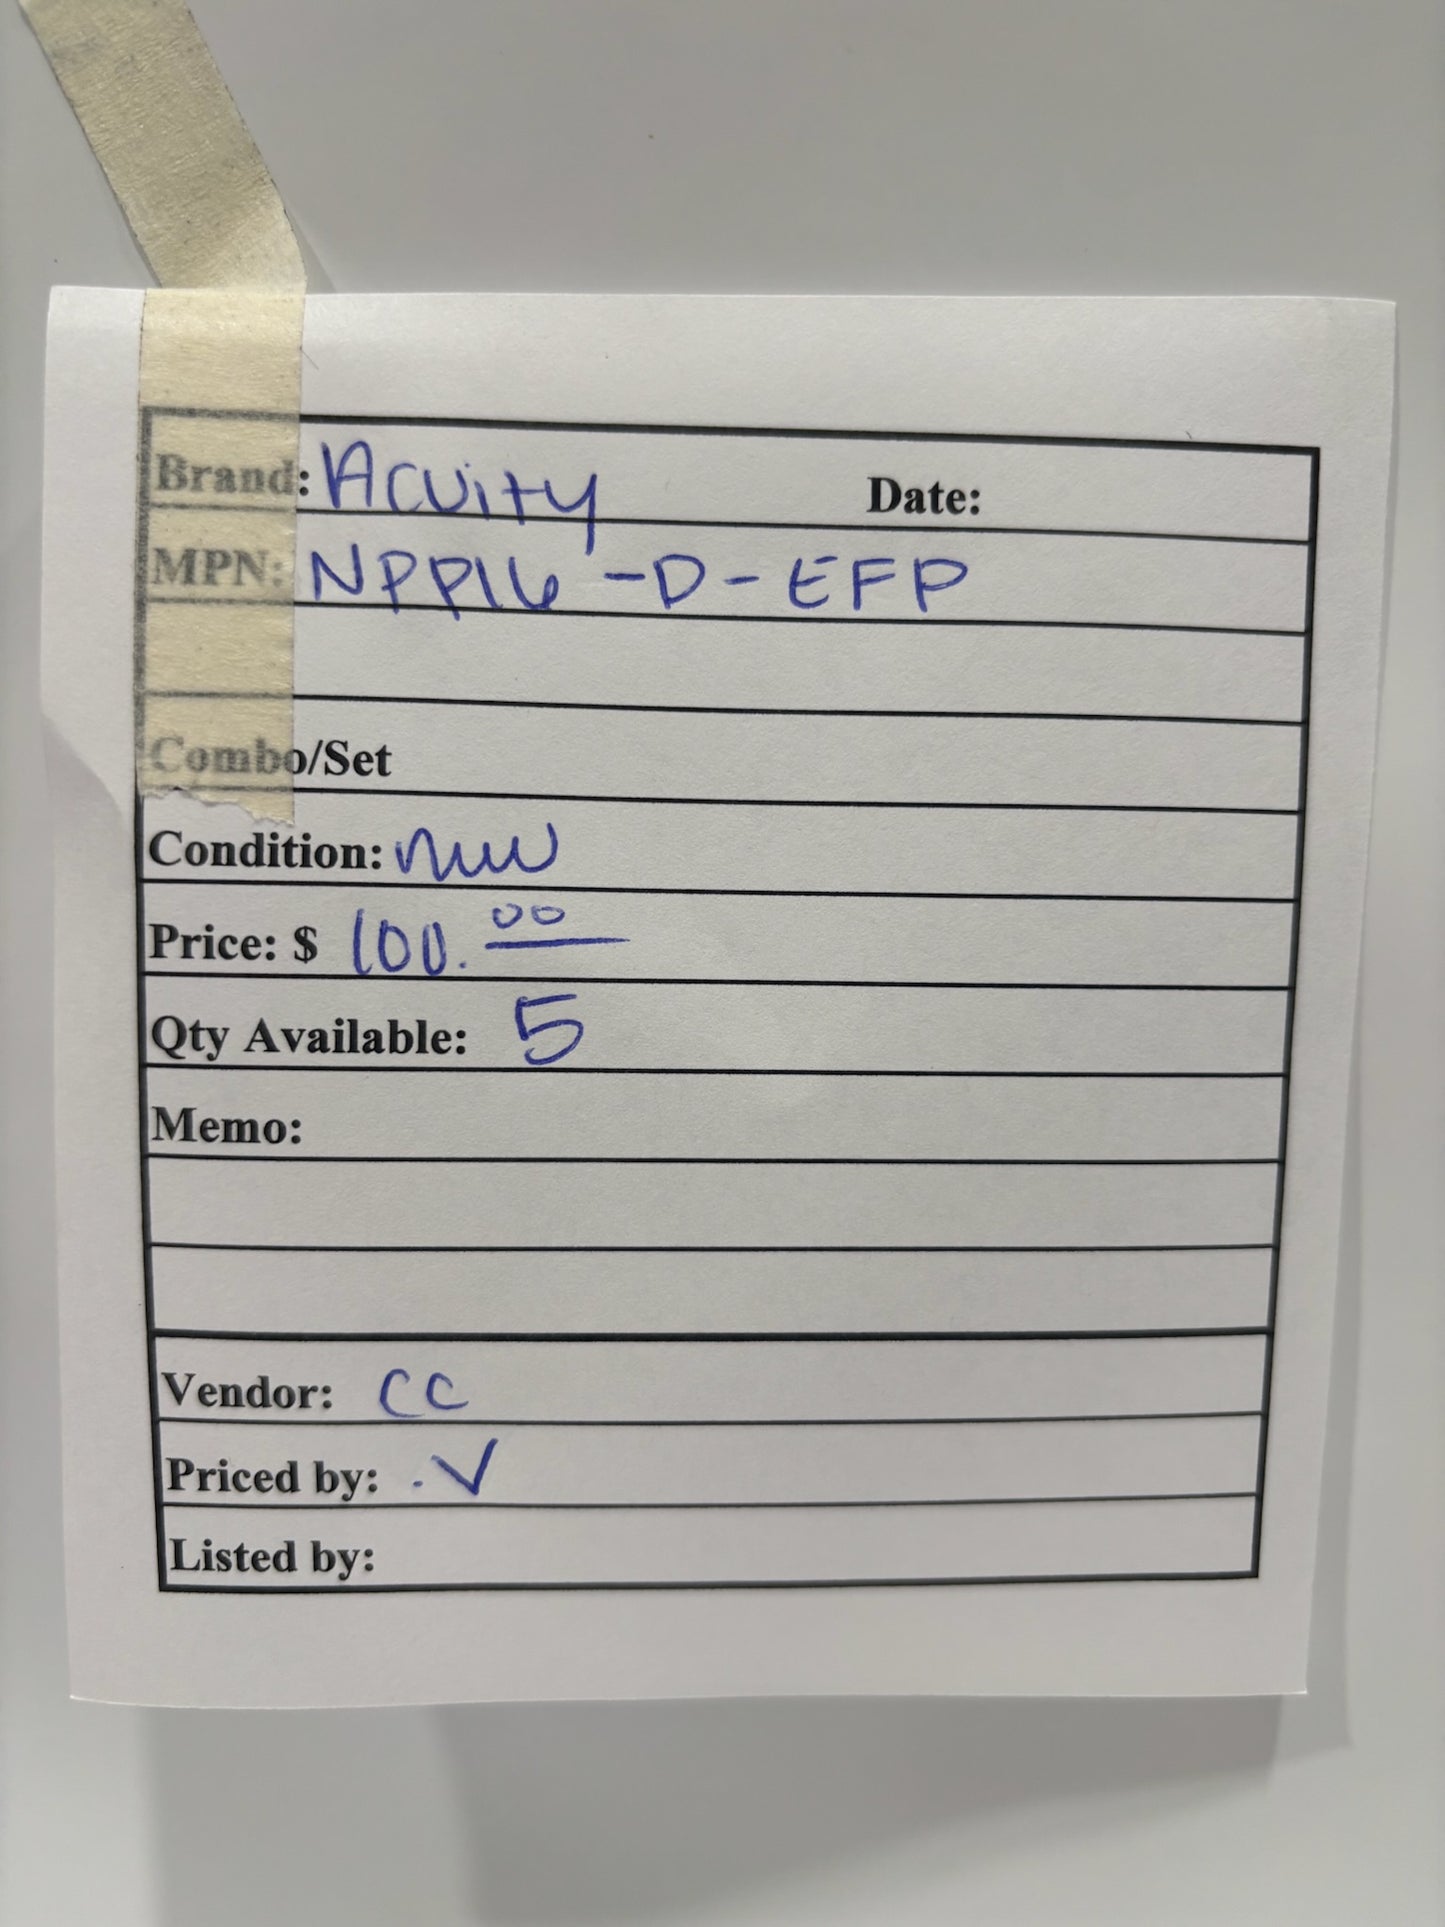 Brand: Acuity Date:
MPN: NPP16-D-EFP
Combo/Set
Condition: new
Price: $ 100.00
Qty Available: 5
Memo:
Vendor: CC
Priced by: .V
Listed by: